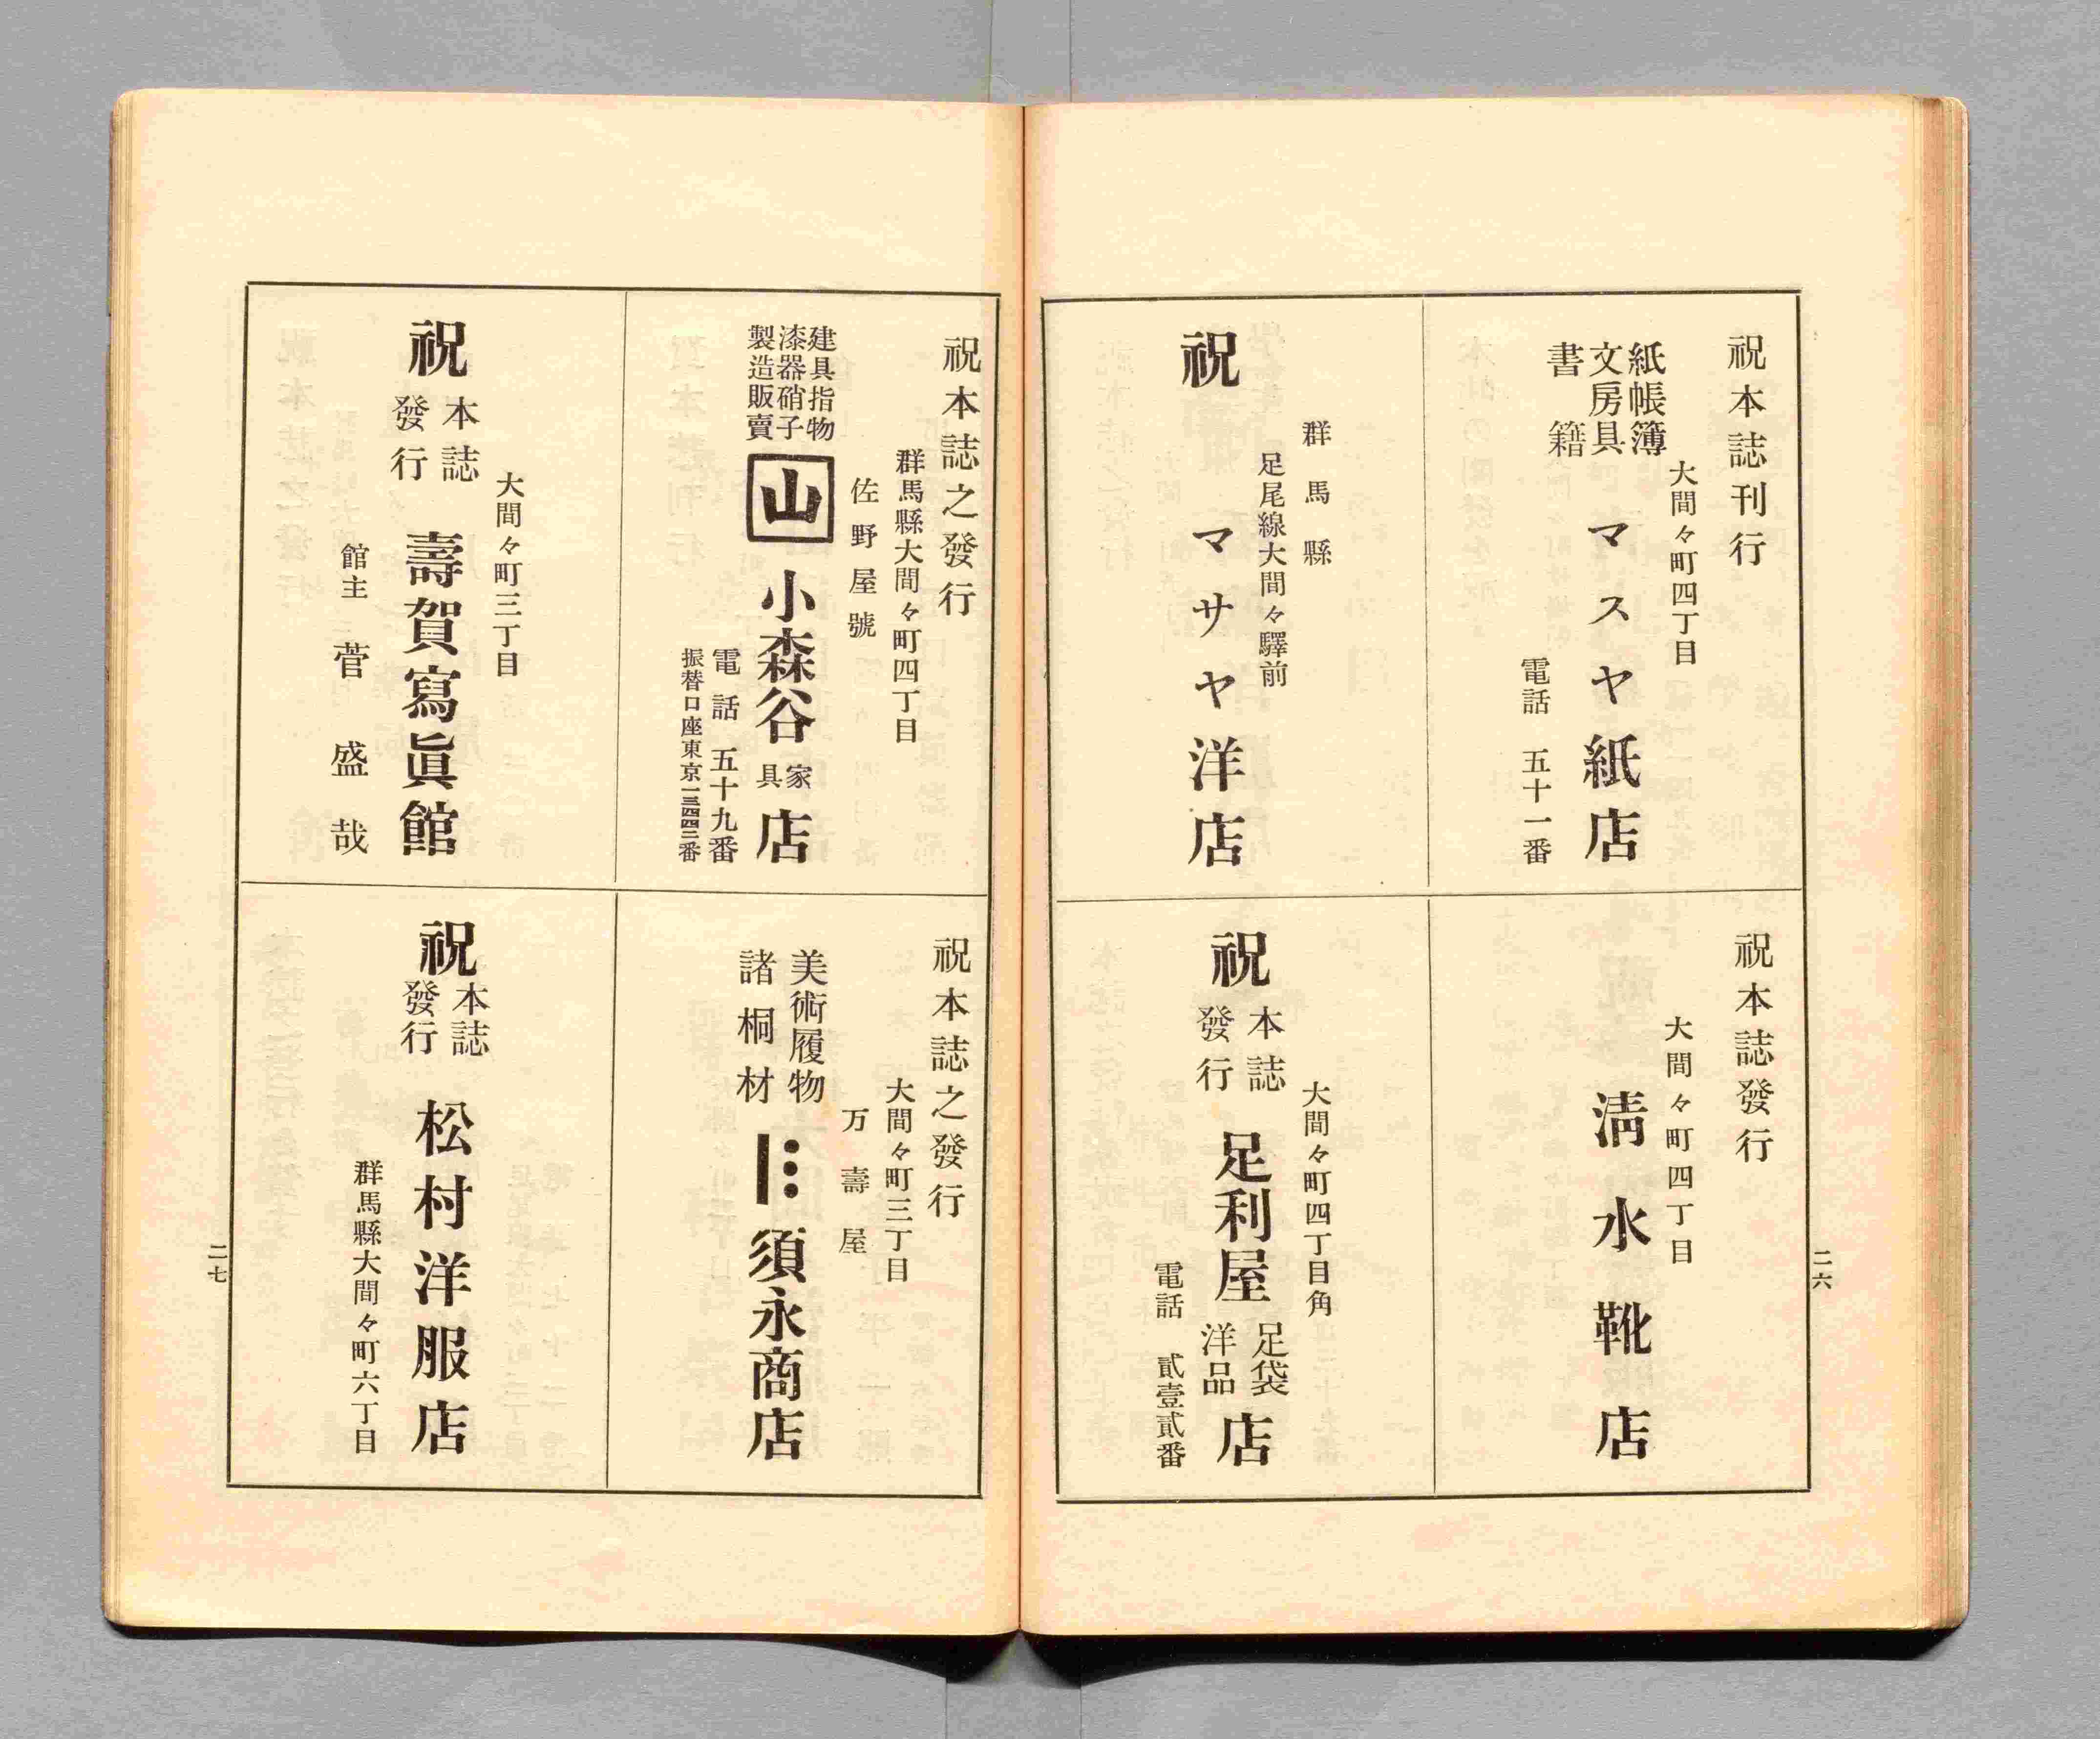 祝本誌刊行
大間々町四丁目
紙帳簿
文房具
書籍
マスヤ紙店
電話 五十一番
群馬縣
足尾線大間々驛前
祝 マサヤ洋店
祝本誌發行
大間々町四丁目
淸水靴店
大間々町四丁目角
祝
本誌
發行
足利屋
足袋
洋品
店
電話 貳壹貳番
二六
祝本誌之發行
群馬縣大間々町四丁目
佐野屋號
建具指物
漆器硝子
製造販賣
山 小森谷
家
具
店
電話 五十九番
振替口座東京一三四四二番
大間々町三丁目
祝
本誌
發行
壽賀寫眞館
館主 菅盛哉
祝本誌之發行
大間々町三丁目
万壽屋
美術履物
諸桐材
須永商店
祝
本誌
發行
松村洋服店
群馬縣大間々町六丁目
二七